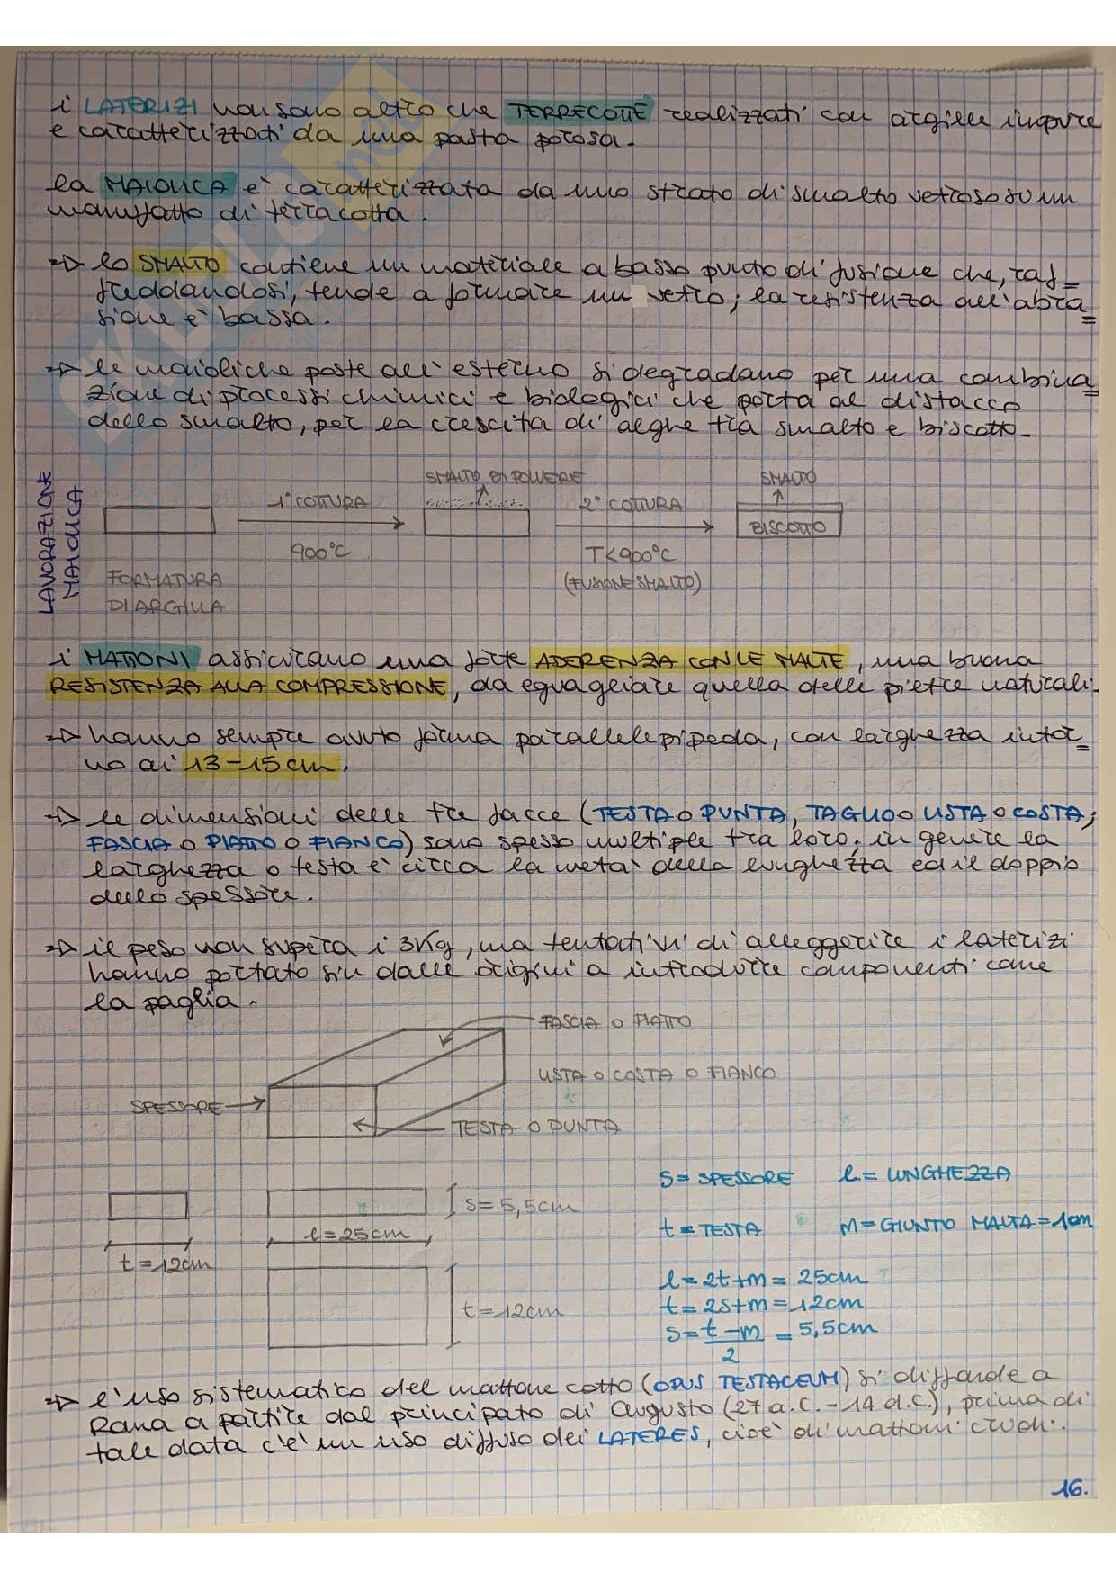 i LATERIZI non sono altro che TERRECOTTE realizzati con argille impure
e caratterizzati da una pasta porosa.
la MAIOLICA e' caratterizzata da uno strato di smalto vetroso su un
manufatto di terracotta.
=> lo SMALTO contiene un materiale a basso punto di fusione che, raf=
freddandosi, tende a formare un vetro; la resistenza all'abra=
sione e' bassa.
=> le maioliche poste all'esterno si degradano per una combina
zione di processi chimici e biologici che porta al distacco
dello smalto, per la crescita di alghe tra smalto e biscotto.
LAVORAZIONE
MAIOLICA
FORMATURA
DI ARGILLA
1° COTTURA
900°C
SMALTO IN POLVERE
2° COTTURA
T<900°C
(FUSIONE SMALTO)
SMALTO
BISCOTTO
i MATTONI assicurano una forte ADERENZA CON LE MALTE, una buona
RESISTENZA ALLA COMPRESSIONE, da eguagliare quella delle pietre naturali.
=> hanno sempre avuto forma parallelepipeda, con larghezza intor=
no ai 13-15 cm.
=> le dimensioni delle tre facce (TESTA o PUNTA, TAGLIO o LISTA o COSTA;
FASCIA o PIATTO o FIANCO) sono spesso multiple tra loro; in genere la
larghezza o testa e' circa la meta' della lunghezza ed il doppio
dello spessore.
=> il peso non supera i 3Kg, ma tentativi di alleggerire i laterizi
hanno portato sin dalle origini a introdurre componenti come
la paglia.
FASCIA o PIATTO
LISTA o COSTA o FIANCO
SPESSORE
TESTA O PUNTA
s= SPESSORE l= LUNGHEZZA
t= TESTA M= GIUNTO MALTA=1cm
s=5,5cm
l=25cm
t=12cm
t=12cm
l=2t+m= 25cm
t=2s+m=12cm
s=t-m/2=5,5cm
=> l'uso sistematico del mattone cotto (OPUS TESTACEUM) si diffonde a
Roma a partire dal principato di Augusto (27 a.C.-14 d.C.), prima di
tale data c'e' un uso diffuso dei LATERES, cioe' di mattoni crudi.
16.